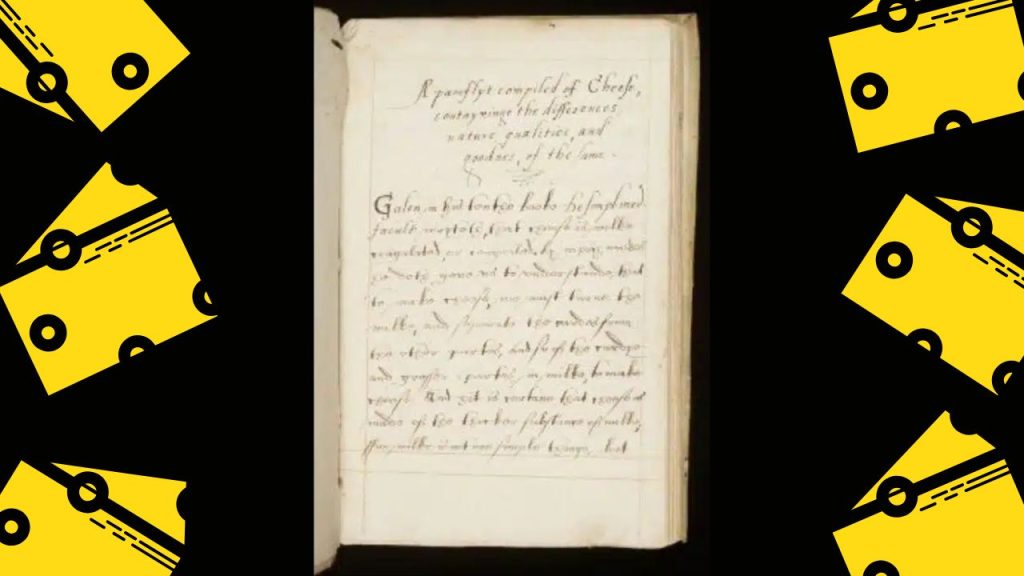 A pamflyt compiled of Cheese,
contayninge the differences,
nature, qualities, and
goodnes, of the same.
Galen, in his booke
facult: that cheese is milke
or by
to understande, that
to make cheese, we must turne the
milke, and separate the from
the other partes, and the
and grosser partes, in milke, to make
cheese. And yet is certane that cheese is
made of the thicker substance of milke,
ffor milke is not one simple thinge, but